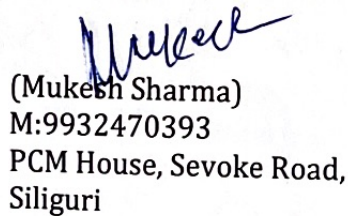 Mukesh
(Mukesh Sharma)
M:9932470393
PCM House, Sevoke Road,
Siliguri